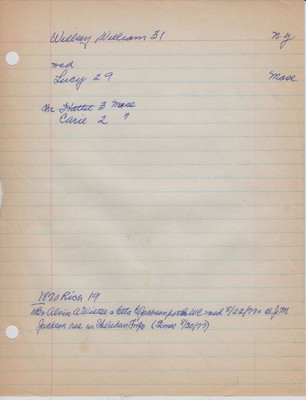 William 31 N Y
md
Lucy 29 Mass
ch Hattie 3 Mass
Carie 2 ?
1870 Rich 19
Mr Alvin A & Etta Jackson both WC md 8/22/77
Jackson res in Sheridan Twp (Times 8/30/77)